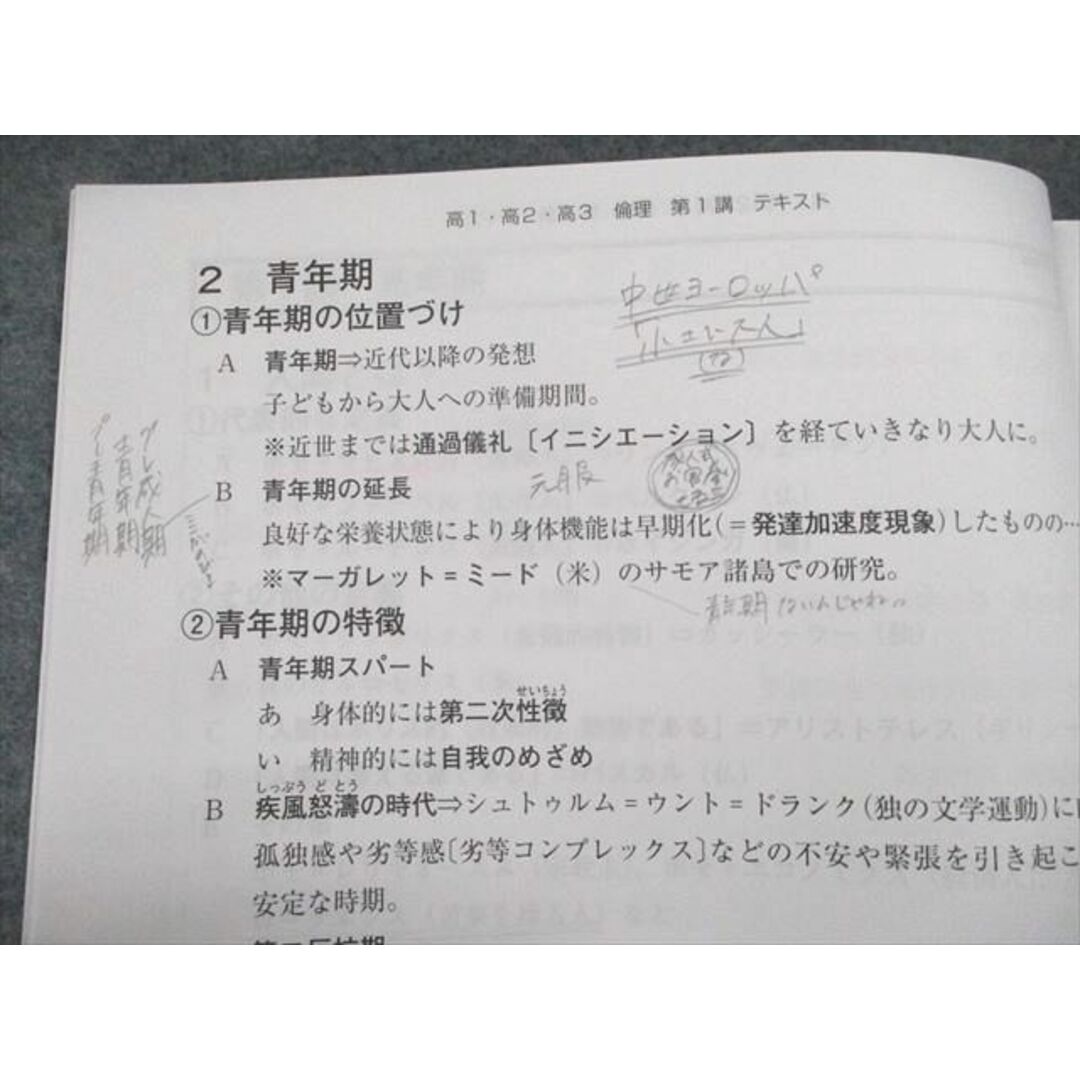 高1・高2・高3 倫理 第1講 テキスト
2 青年期
中世ヨーロッパ
①青年期の位置づけ
「小さい大人」
A 青年期⇒近代以降の発想
子どもから大人への準備期間。
※近世までは通過儀礼〔イニシエーション〕を経ていきなり大人に。
プレ成人期
青年期
プレ青年期
B 青年期の延長
元服
成人式
良好な栄養状態により身体機能は早期化(=発達加速度現象)したものの…
※マーガレット=ミード(米)のサモア諸島での研究。
青年期ないんじゃね
②青年期の特徴
A 青年期スパート
せいちょう
あ 身体的には第二次性徴
い 精神的には自我のめざめ
しっぷうどとう
B 疾風怒濤の時代⇒シュトゥルム=ウント=ドランク(独の文学運動)に
孤独感や劣等感〔劣等コンプレックス〕などの不安や緊張を引き起こ
安定な時期。